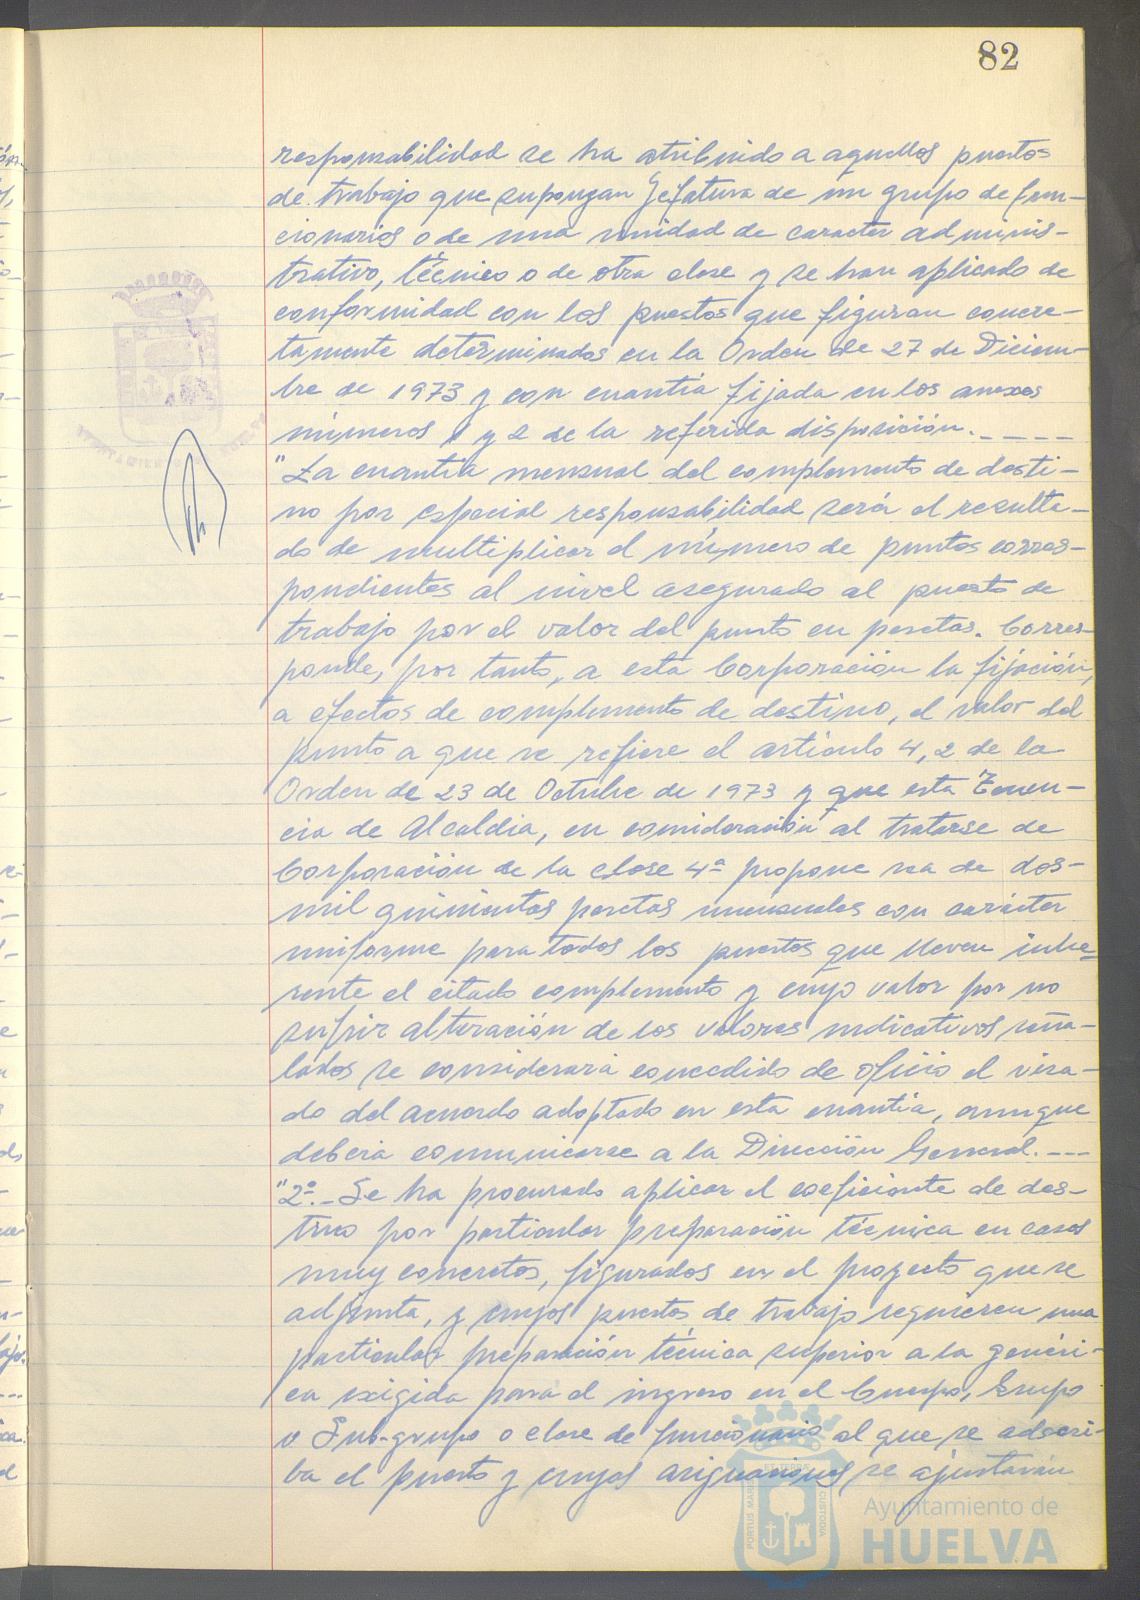 82
responsabilidad se ha atribuido a aquellos puestos
de trabajo que supongan Jefatura de un grupo de fun-
cionarios o de una unidad de caracter adminis-
trativo, técnico o de otra clase y se han aplicado de
conformidad con los puestos que figuran concre-
tamente determinados en la Orden de 27 de Diciem-
bre de 1973 y con cuantía fijada en los anexos
números 1 y 2 de la referida disposición.----
"La cuantía mensual del complemento de desti-
no por especial responsabilidad será el resulta-
do de multiplicar el número de puntos corres-
pondientes al nivel asegurado al puesto de
trabajo por el valor del punto en pesetas. Corres-
ponde, por tanto, a esta Corporación la fijación,
a efectos de complemento de destino, el valor del
punto a que se refiere el artículo 4, 2 de la
Orden de 23 de Octubre de 1973 y que esta Tenen-
cia de Alcaldia, en consideración al tratarse de
Corporación de la clase 4ª propone sea de dos-
mil quinientas pesetas mensuales con carácter
uniforme para todos los puestos que lleven inhe-
rente el citado complemento y cuyo valor por no
sufrir alteración de los valores indicativos seña-
lados se considerará concedido de oficio el visa-
do del acuerdo adoptado en esta cuantía, aunque
deberia comunicarse a la Dirección General.---
"2º.- Se ha procurado aplicar el coeficiente de des-
tino por particular preparación técnica en casos
muy concretos, figurados en el proyecto que se
adjunta, y cuyos puestos de trabajo requieren una
particular preparación técnica superior a la genéri-
ca exigida para el ingreso en el Cuerpo, Grupo
o Sub-grupo o clase de funcionario al que se adscri-
ba el puesto y cuyas asignaciones se ajustarán
PORTUS MARIS ET TERRAE CUSTODIA
Ayuntamiento de
HUELVA